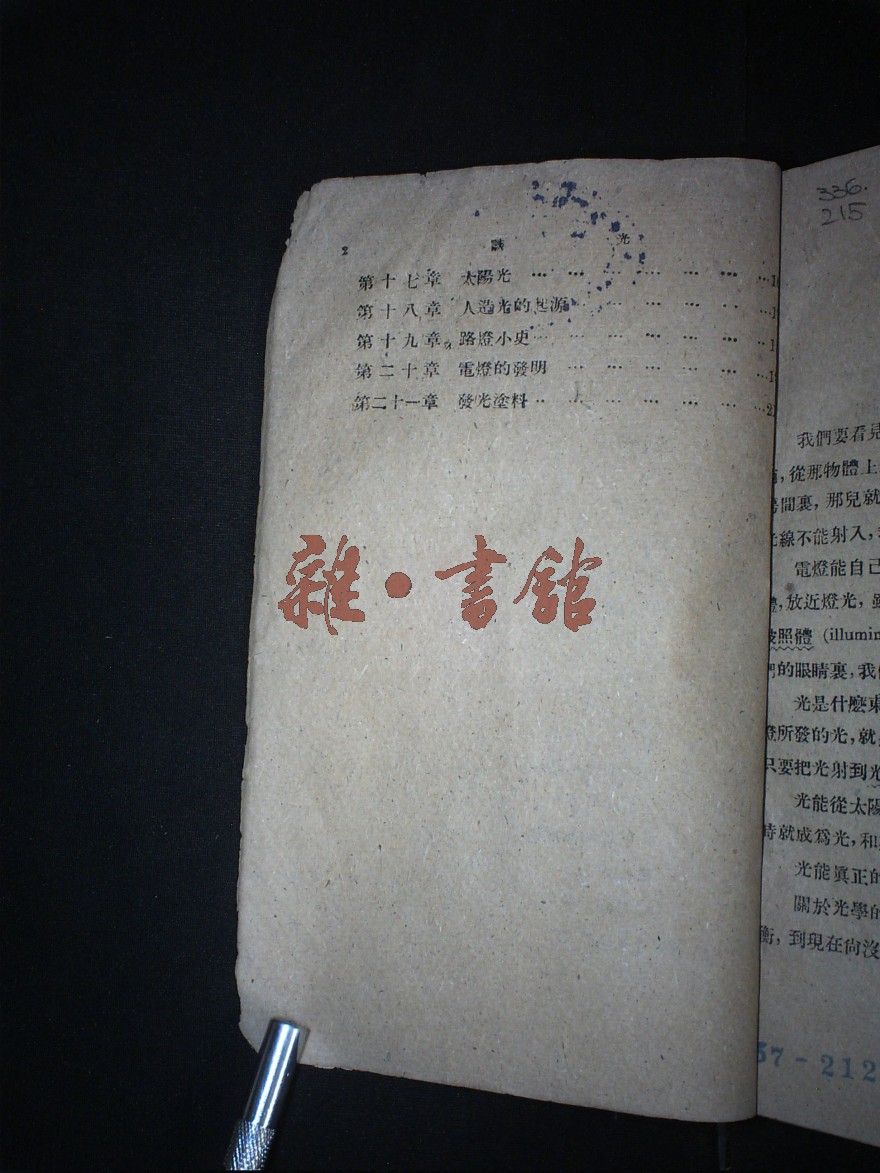 2 談 光
第十七章 太陽光 … … … … … …
第十八章 人造光的起源 … … … …
第十九章 路燈小史 … … … … …
第二十章 電燈的發明 … … … … …
第二十一章 發光塗料 … … … … … …
雜·書館
336.
215
我們要看見
從那物體上
間裏，那兒就
線不能射入，
電燈能自己
體，放近燈光，
被照體 (illumin
們的眼睛裏，我
光是什麽東
燈所發的光，就
只要把光射到光
光能從太陽
時就成爲光，和
光能眞正的
關於光學的
衡，到現在尙沒
57-212